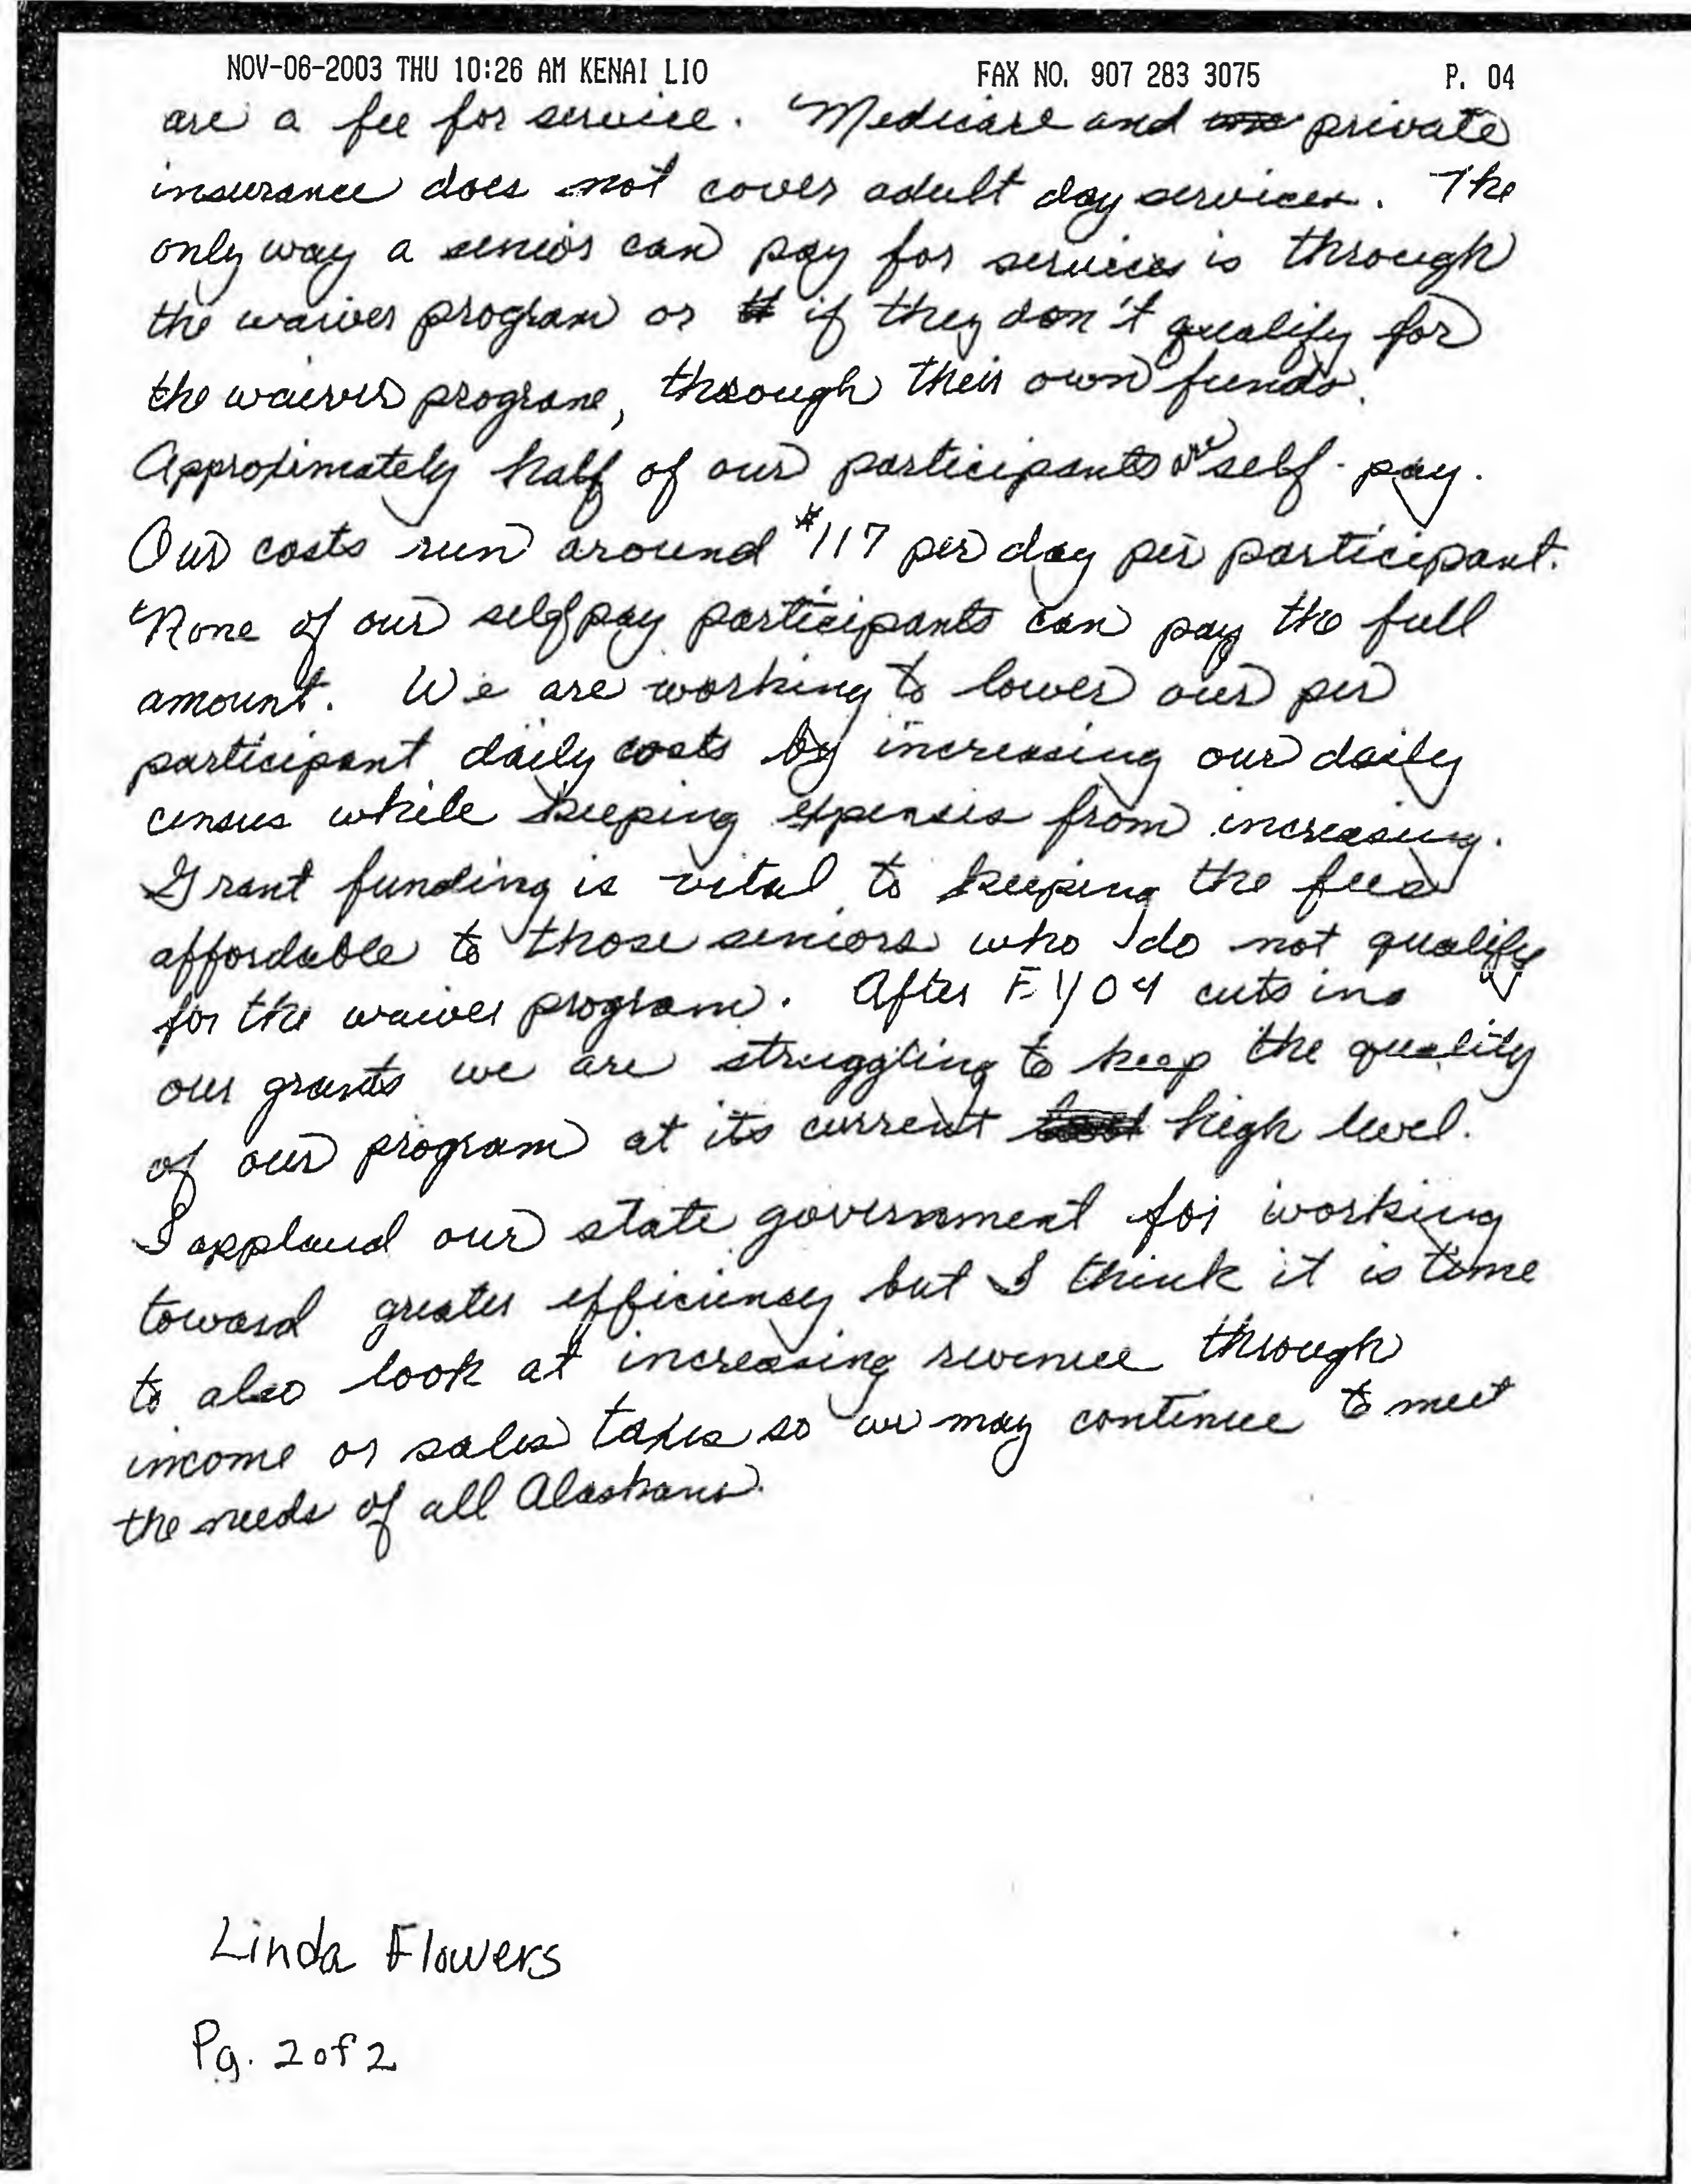 NOV-06-2003 THU 10:26 AM KENAI LIO FAX NO. 907 283 3075 P. 04
are a fee for service. Medicare and private
insurance does not cover adult day services. The
only way a senior can pay for services is through
the waiver program or if they don't qualify for
the waiver program, through their own funds.
Approximately half of our participants are self-pay.
Our costs run around $117 per day per participant.
None of our self pay participants can pay the full
amount. We are working to lower our per
participant daily costs by increasing our daily
census while keeping expenses from increasing.
Grant funding is vital to keeping the fees
affordable to those seniors who do not qualify
for the waiver program. After FY04 cuts in
our grants we are struggling to keep the quality
of our program at its current high level.
I applaud our state government for working
toward greater efficiency but I think it is time
to also look at increasing revenue through
income or sales taxes so we may continue to meet
the needs of all Alaskans.
Linda Flowers
Pg. 2 of 2